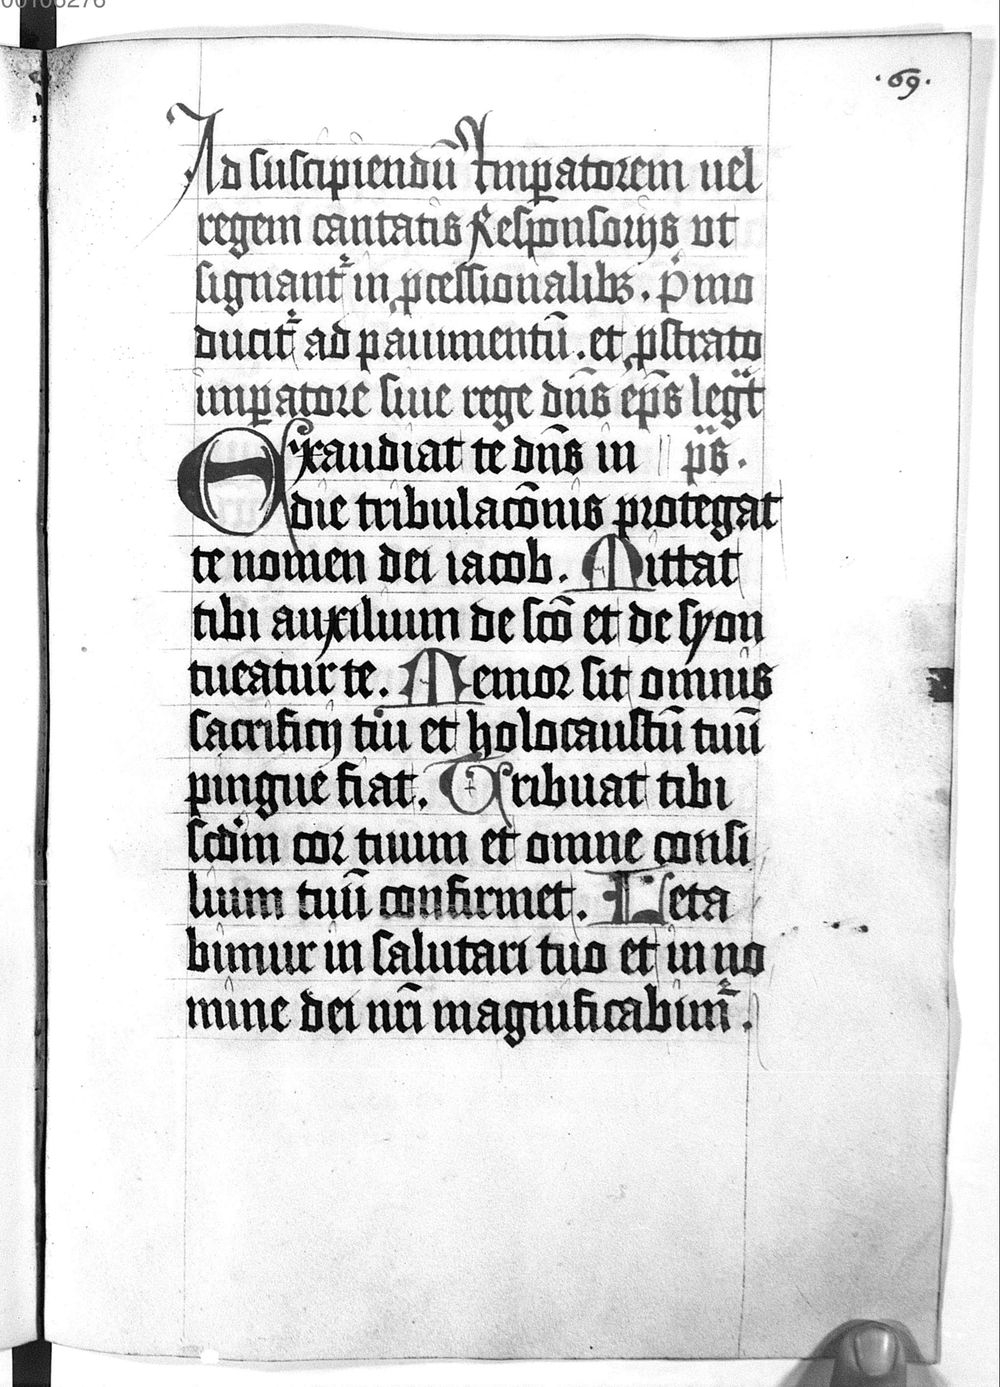 00106276
.69.
Ad suscipiendū Imꝑatorem uel
regem cantatis Responsorijs vt
signantᷣ in ꝓcessionalibꝫ. Pͥmo
ducitᷣ ad pauimentū. et ꝓstrato
imꝑatore siue rege dn̄s ep̄s legͥt
Exaudiat te dn̄s in ps.
die tribulacōnis protegat
te nomen dei iacob. Mittat
tibi auxilium de scō et de syon
tueatur te. Memor sit omnis
sacrificij tui et holocaustū tuū
pingue fiat. Tribuat tibi
scdm cor tuum et omne consi
lium tuū confirmet. Leta
bimur in salutari tuo et in no
mine dei nr̄i magnificabimᷣ.